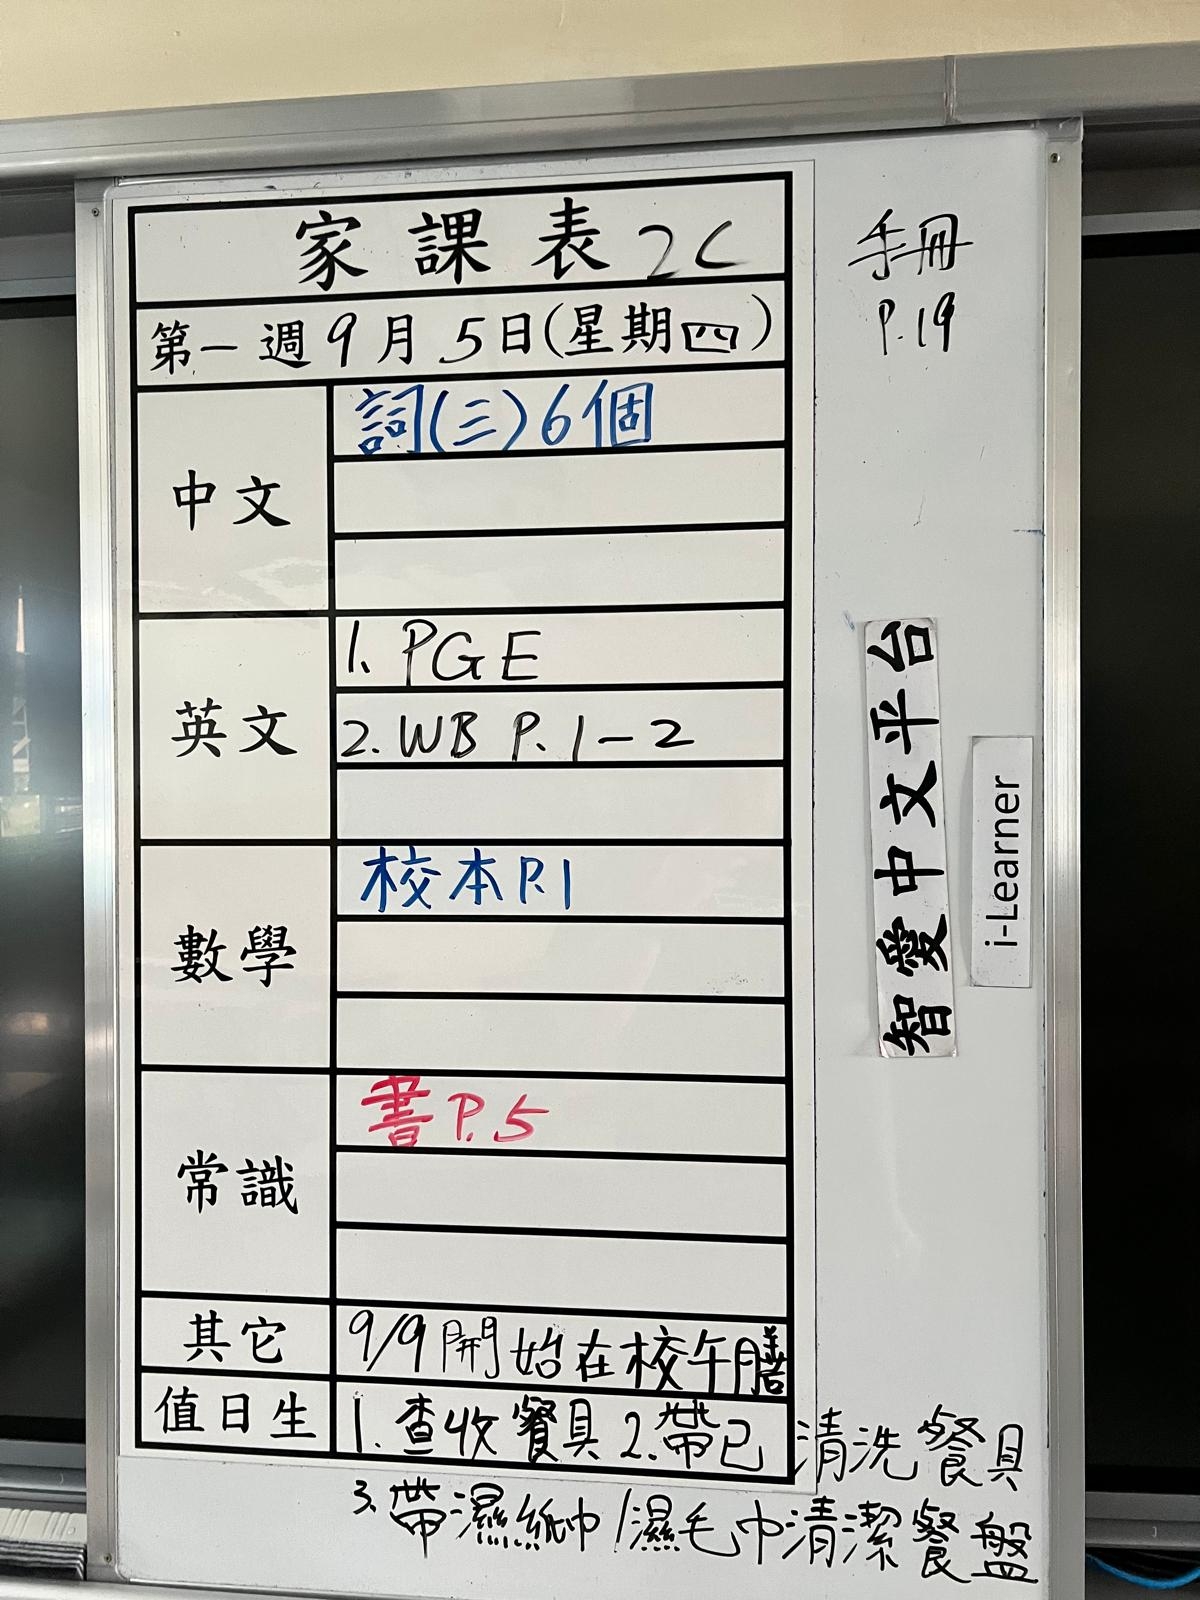 家課表 2C
第一週9月5日(星期四)
手冊
P.19
中文
詞(三)6個
英文
1. PGE
2. WB P. 1-2
數學
校本P.1
常識
書P.5
其它
9/9開始在校午膳
值日生
1. 查收餐具 2. 帶已清洗餐具
3. 帶濕紙巾/濕毛巾清潔餐盤
智愛中文平台
i-Learner